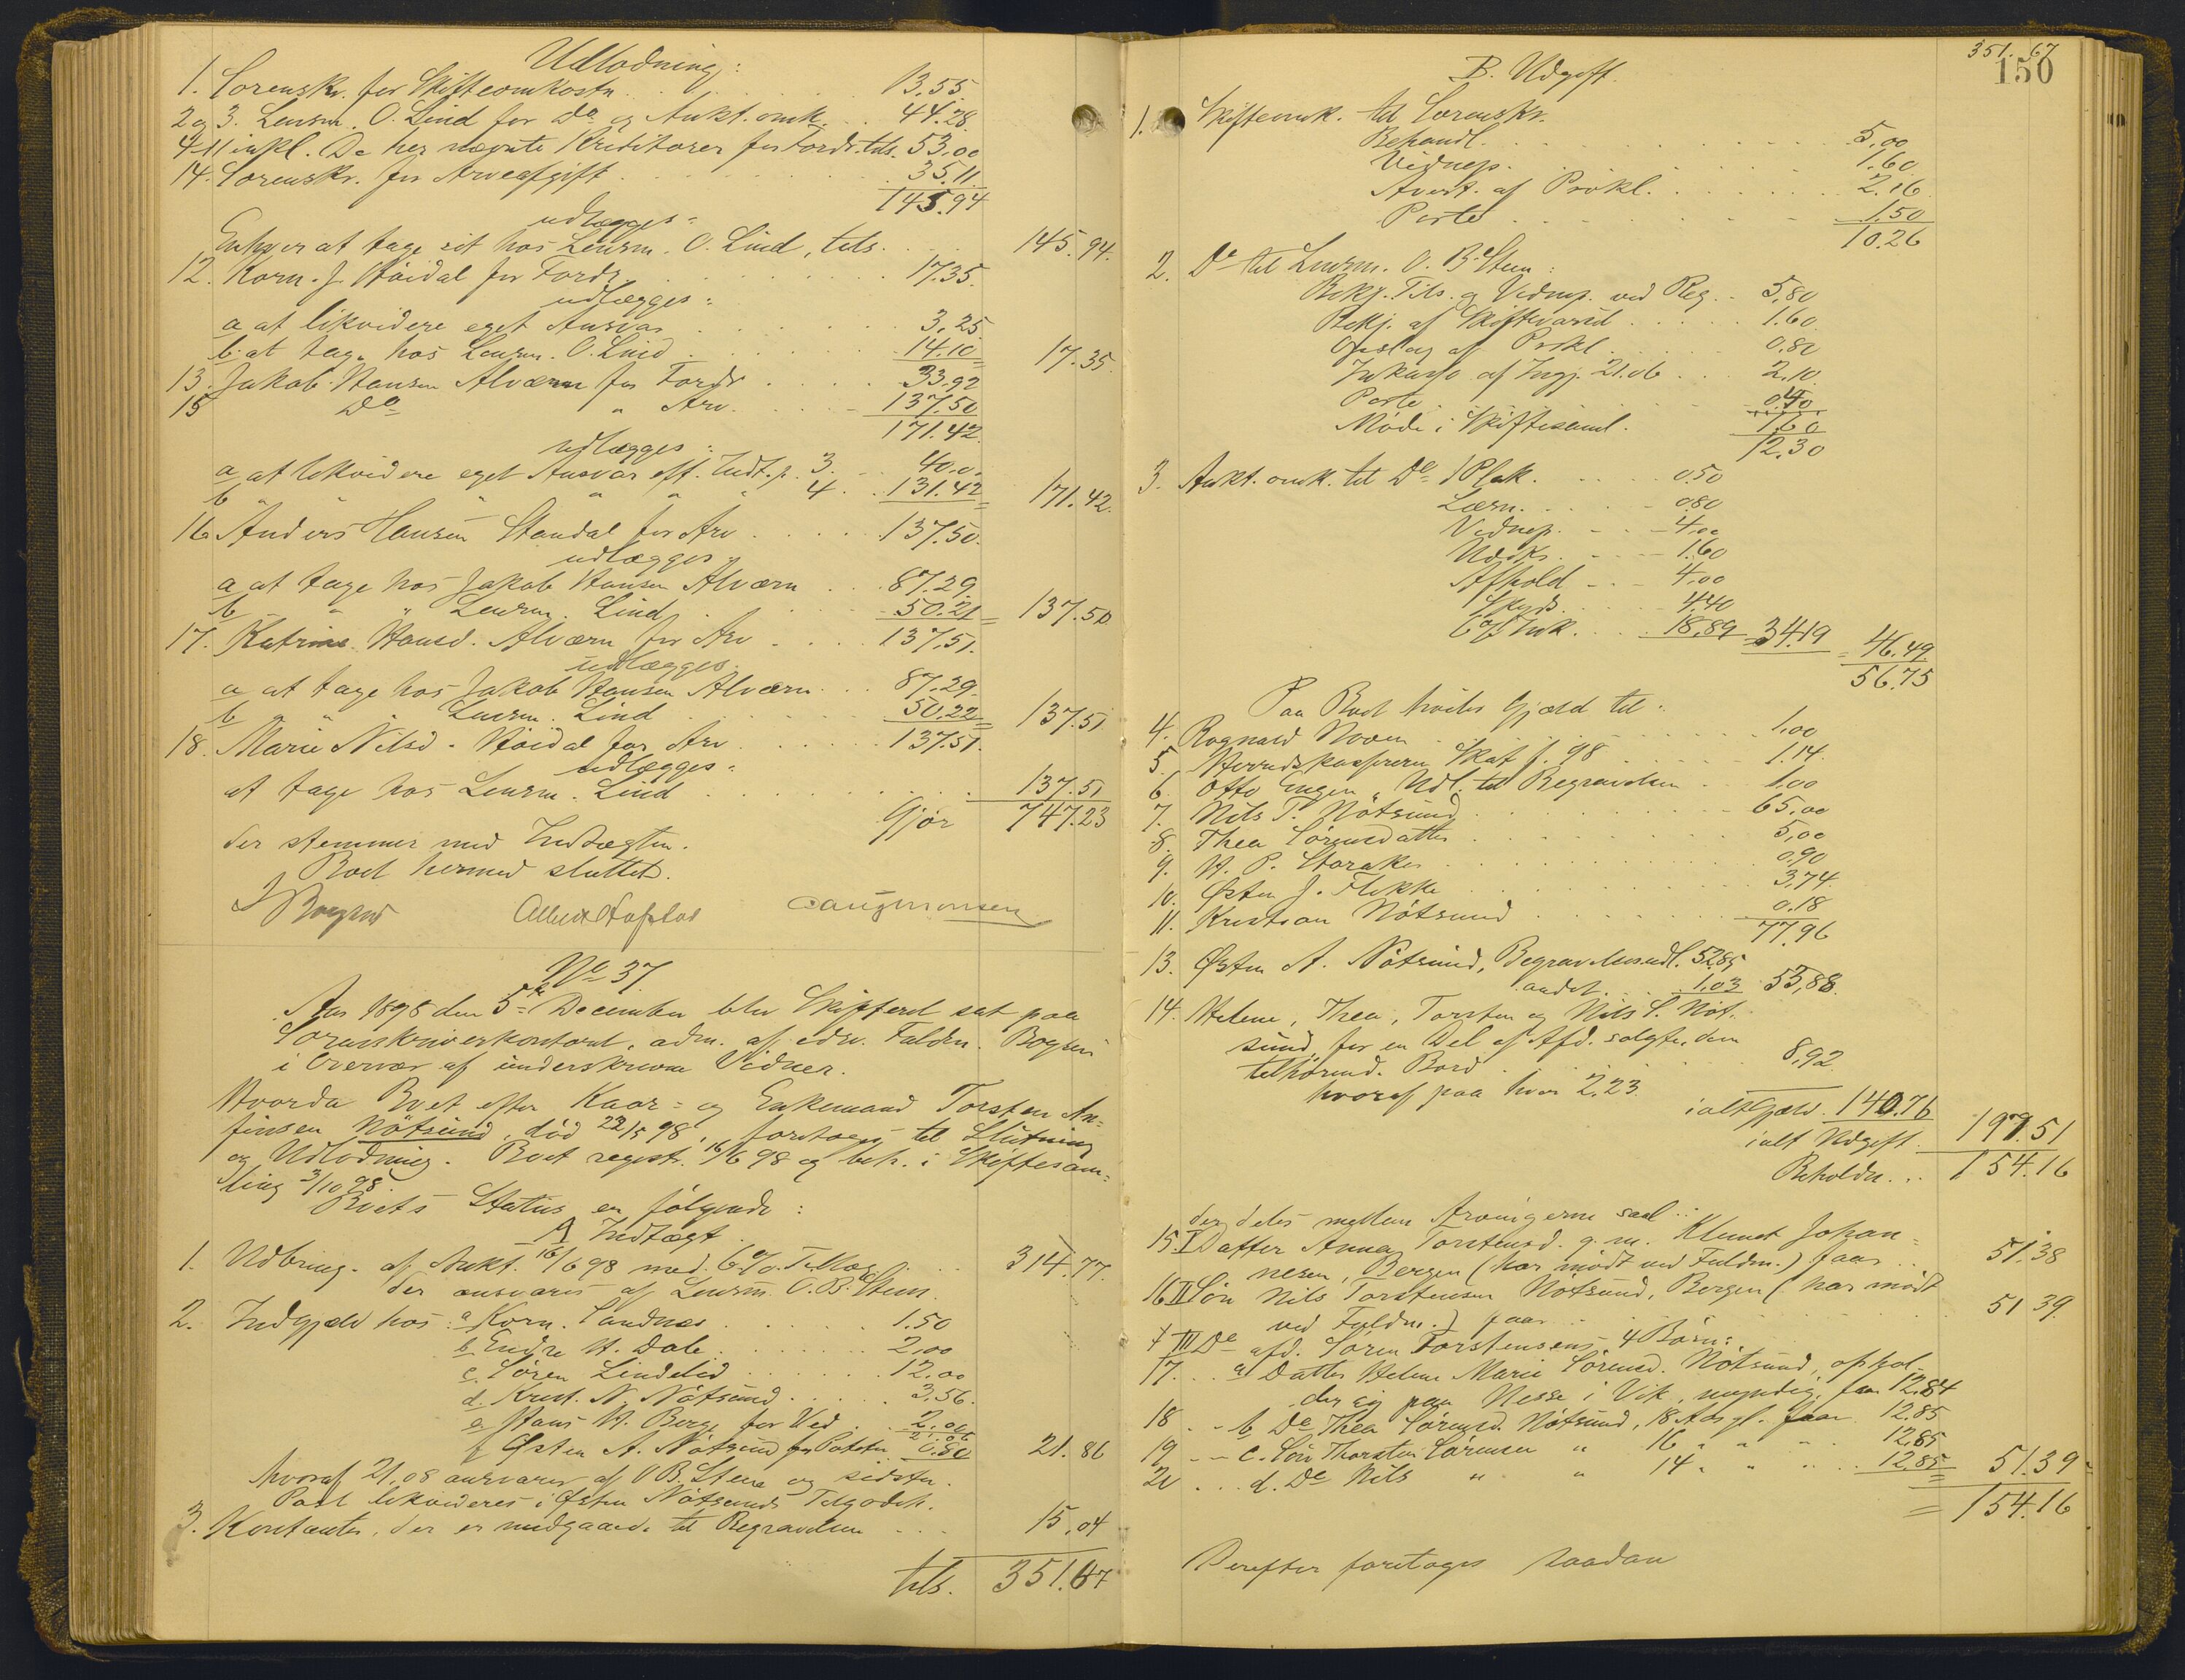 Udlodning:
1. Sorenskr. for Skifteomkostn. 13.55.
2 og 3. Lensm. O. Lind for Do og Aukt. omk. 44.28.
4-11 inkl. De her nævnte Kreditorer for Fordr. tils. 53,00
14. Sorenskr. for Arveafgift 35.11.
145.94
udlægges:
Enhver at tage sit hos Lensm. O. Lind, tils. 145.94.
12. Korn. J. Høidal for Fordr. 17.35.
udlægges:
a at likvidere eget Ansvar 3,25
b. at tage hos Lensm. O. Lind 14.10 = 17.35.
13. Jakob Hansen Alværn for Fordr 33,92
15 Do " Arv. 137.50
171.42.
udlægges:
a at likvidere eget Ansvar eft. Indt. p. 3. 40.0.
b " " " " " 4. 131.42 = 171.42.
16. Anders Hansen Standal for Arv 137.50.
udlægges:
a at tage hos Jakob Hansen Alværn 87.29.
b " " Lensm. Lind 50.21 = 137.50
17. Katrine Hansd. Alværn for Arv 137,51.
udlægges:
a at tage hos Jakob Hansen Alværn 87.29.
b " " Lensm. Lind 50.22 = 137.51
18. Marie Nilsd. Høidal for Arv 137.51.
udlægges:
at tage hos Lensm. Lind 137.51
Gjør 747.23
der stemmer med Indtægten.
Boet hermed sluttet.
No 37
Aar 1898 den 5te December blev Skifteret sat paa
Sorenskriverkontoret, adm. af edsv. Fuldm. Bogen
i Overvær af underskrevne Vidner.
Hvorda Boet efter Kaar- og Enkemand Torsten An-
finsen Nøtsund, død 22/5 98, foretoges til Slutning
og Udlodning. Boet registr. 16/6 98 og beh. i Skiftesam-
ling 3/10 98
Boets Status er følgende:
A Indtægt.
1. Udbring. af Aukt. 16/6 98 med 6% Tillæg 314.77.
der ansvares af Lensm. O. B. Steen.
2. Indgjæld hos: a Korn. Sandnes 1.50
b Endre H. Dale 2,00
c. Søren Lindelid 12,00
d. Krist. N. Nøtsund 3,56.
e Hans H. Berge for Ved 2.00
21.06
f Østen A. Nøtsund for Poteter 0.80 21.86
hvoraf 21,08 ansvares af O B. Steen og sidste
Post likvideres i Østen Nøtsunds Tilgodeh.
3. Kontanter, der er medgaaede til Begravelsen 15,04
tils. 351.67
351.67
150
B. Udgift.
1. Skifteomk. til Sorenskr.
Behandl. 5,00
Vidnep. 1.60
Avert. af Prokl. 2.16
Porto 1.50
10.26
2. Do til Lensm. O. B. Steen:
Bekj. Tils. og Vidnep. ved Reg. 5,80
Bekj. af Skiftevarsel 1.60
Opslag af Prokl. 0,80
Inkasso af Ingj. 21.06 2.10.
Porto 0.40
Møde i Skiftesaml. 1.60
12,30
3. Aukt. omk. til Do: 1 Plak. 0.50
Lærn. 0.80
Vidnep. 4.00
Udskr. 1.60
Afhold 4.00
Skyds 4.40
6% Ink. 18,89 34.19 = 46.49.
56.75
Paa Boet hviler Gjæld til:
4. Rognald Moen 1.00
5. Herredskassereren, Skat f. 98 1.14.
6. Otto Engen, Udl. til Begravelsen 1,00
7. Nils T. Nøtsund 65,00
8. Thea Sørensdatter 5,00
9. H. P. Staraker 0.90
10. Østen J. Flekke 3,74.
11. Kristian Nøtsund 0.18
77.96
13. Østen A. Nøtsund, Begravelsesudl. 52.85
andet 1.03 53,88.
14. Helene, Thea, Torsten og Nils S. Nøt-
sund for en Del af Afd. solgte, dem
tilhørend. Bord 8,92.
hvoraf paa hver 2,23.
ialt Gjæld. 140.76
ialt Udgift. 197.51
Beholdn. 154.16
der deles mellem Arvingerne saal.:
15. I Datter Anna Torstensd. g. m. Klemet Johan-
nesen, Bergen (har mødt ved Fuldm.) faar 51.38
16 II Søn Nils Torstensen Nøtsund, Bergen (har mødt
ved Fuldm.) faar 51 39.
+ III Do afd. Søren Torstensens 4 Børn:
17. a Datter Helene Marie Sørensd. Nøtsund, ophol-
der sig paa Nesse i Vik, myndig, faar 12.84
18 - b Do Thea Sørensd. Nøtsund, 18 Aar gl. faar 12.85
19 - - c. Søn Thorsten Sørensen " 16 " " " 12,85
20 ... d. Do Nils " " 14 " " " 12,85 = 51.39
= 154.16
Derefter foretoges saadan